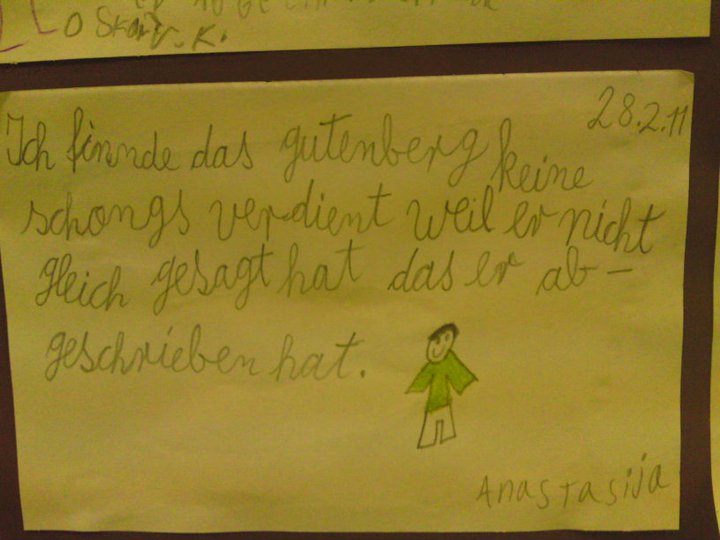 O Skar V. K.
28.2.11
Ich finnde das gutenberg keine
schongs verdient weil er nicht
gleich gesagt hat das er ab-
geschrieben hat.
Anastasija